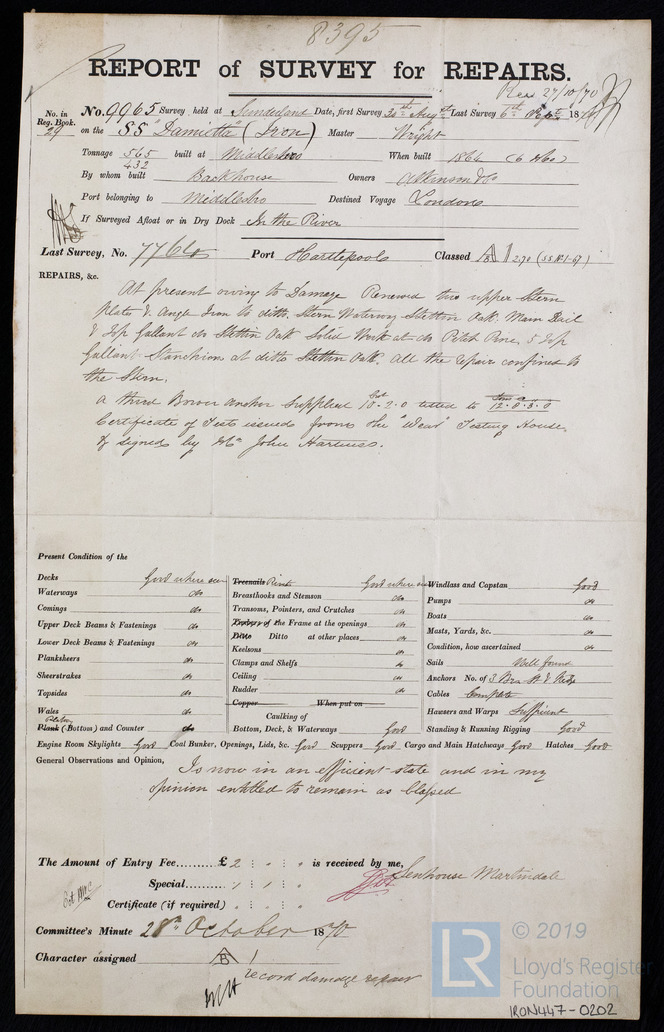 8395
REPORT of SURVEY for REPAIRS.
Rec 27/10/70
No. in Reg. Book. 29
No. 9965 Survey held at Sunderland Date, first Survey 30th Augst Last Survey 6th Sept 1870
on the SS "Damietta" (Iron) Master Wright
Tonnage 565 432 built at Middlesbro When built 1864 (6 Mo)
By whom built Backhouse Owners Atkinson & Co
Port belonging to Middlesbro Destined Voyage London
If Surveyed Afloat or in Dry Dock In the River
Last Survey, No. 7766 Port Hartlepools Classed A 1 2,70 (SS No 1-67)
REPAIRS, &c.
At present owing to Damage Renewed two upper Stern
plate & Angle Iron to ditto. Stern Waterway Stettin Oak. Main Rail
& Top Gallant do Stettin Oak Solid Work at do Pitch Pine, 5 Top
Gallant Stanchions at ditto Stettin Oak. All the repairs confined to
the Stern.
A third Bower anchor supplied 10.2.0 tested to 12.0.3.0
Certificate of Tests issued from the "Wear" Testing House,
& signed by Mr John Hartness.
Present Condition of the
Decks Good where seen
Waterways do
Comings do
Upper Deck Beams & Fastenings do
Lower Deck Beams & Fastenings do
Planksheers do
Sheerstrakes do
Topsides do
Wales do
Plank (Bottom) and Counter do
Treenails Rivets Good where seen
Breasthooks and Stemson do
Transoms, Pointers, and Crutches do
Timbers of the Frame at the openings do
Ditto Ditto at other places do
Keelsons do
Clamps and Shelfs do
Ceiling do
Rudder do
Copper When put on
Caulking of
Bottom, Deck, & Waterways Good
Windlass and Capstan Good
Pumps do
Boats do
Masts, Yards, &c. do
Condition, how ascertained do
Sails Well found
Anchors No. of 3 Brs St & Kedge
Cables Complete
Hawsers and Warps Sufficient
Standing & Running Rigging Good
Engine Room Skylights Good Coal Bunker, Openings, Lids, &c. Good Scuppers Good Cargo and Main Hatchways Good Hatches Good
General Observations and Opinion,
Is now in an efficient state and in my
opinion entitled to remain as Classed
The Amount of Entry Fee £ 2 : " : " is received by me,
Special 1 : 1 : "
Senhouse Martindale
Certificate (if required) " : " : "
Committee's Minute 28th October 1870
Character assigned A 1
record damage repair
© 2019
LR
Lloyd's Register
Foundation
IRON447-0202